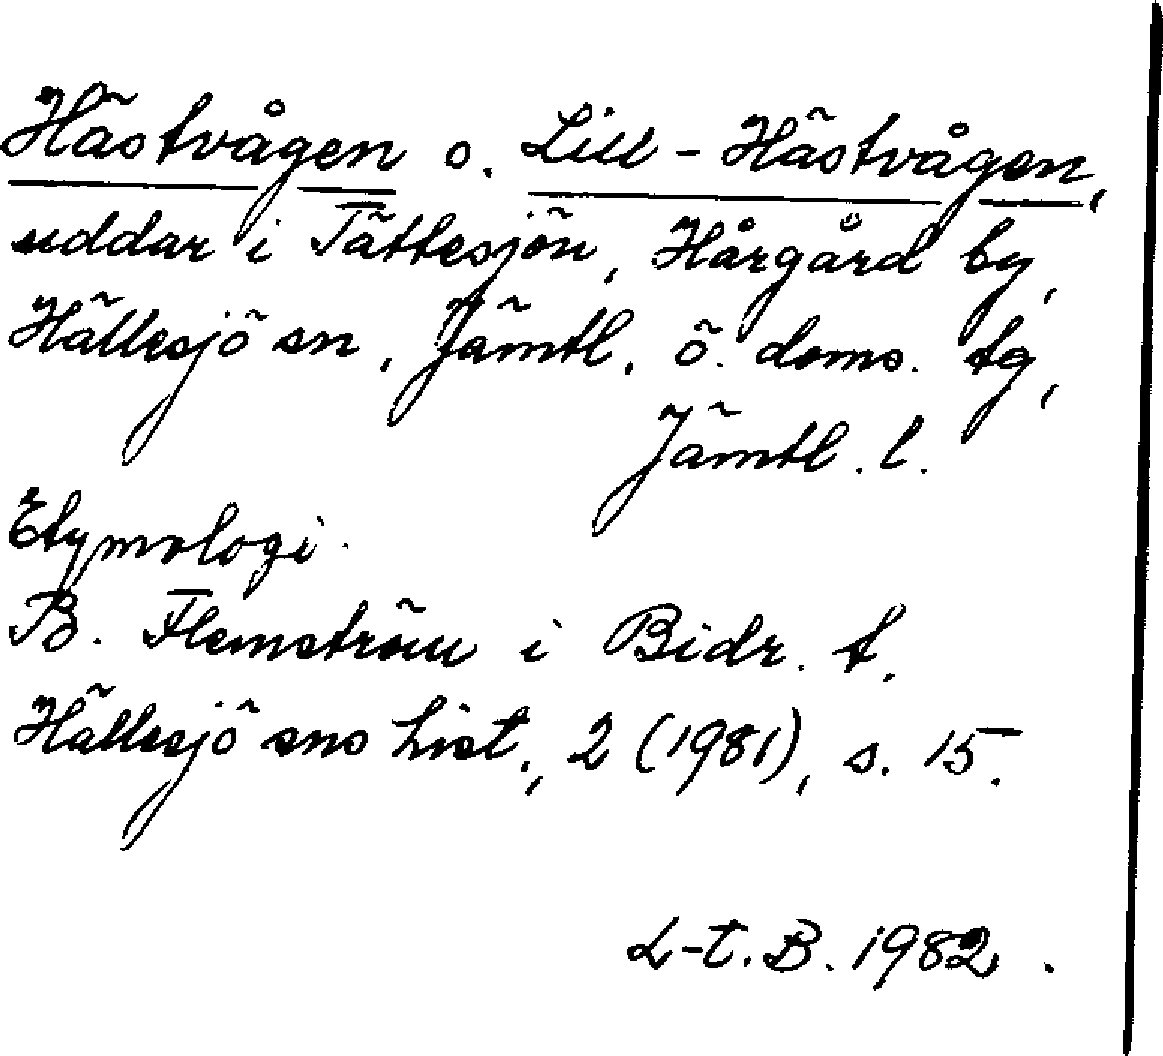 Hästvågen o. Lill-Hästvågen,
uddar i Tättesjön, Hårgård by,
Hällesjö sn, Jämtl. ö. doms. tg,
Jämtl. l.
Etymologi.
B. Flemström i Bidr. t.
Hällesjö sns hist., 2 (1981), s. 15.
L-t. B. 1982.